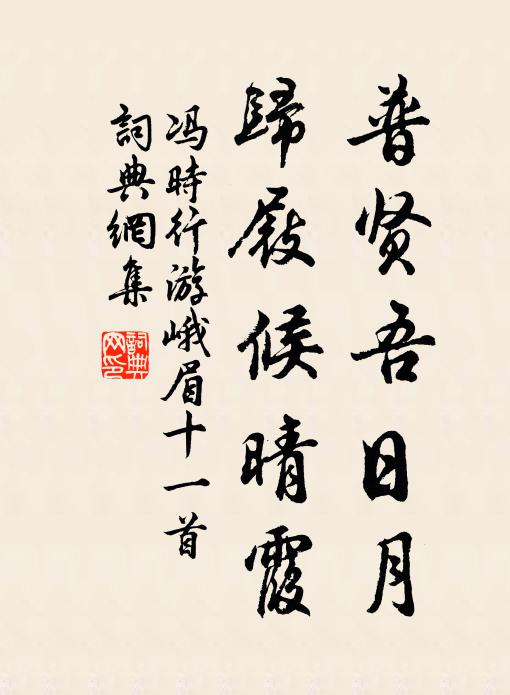 普贤吾日月
歸屐候晴霞
冯時行游峨眉十一首
詞典網集
詞典網印